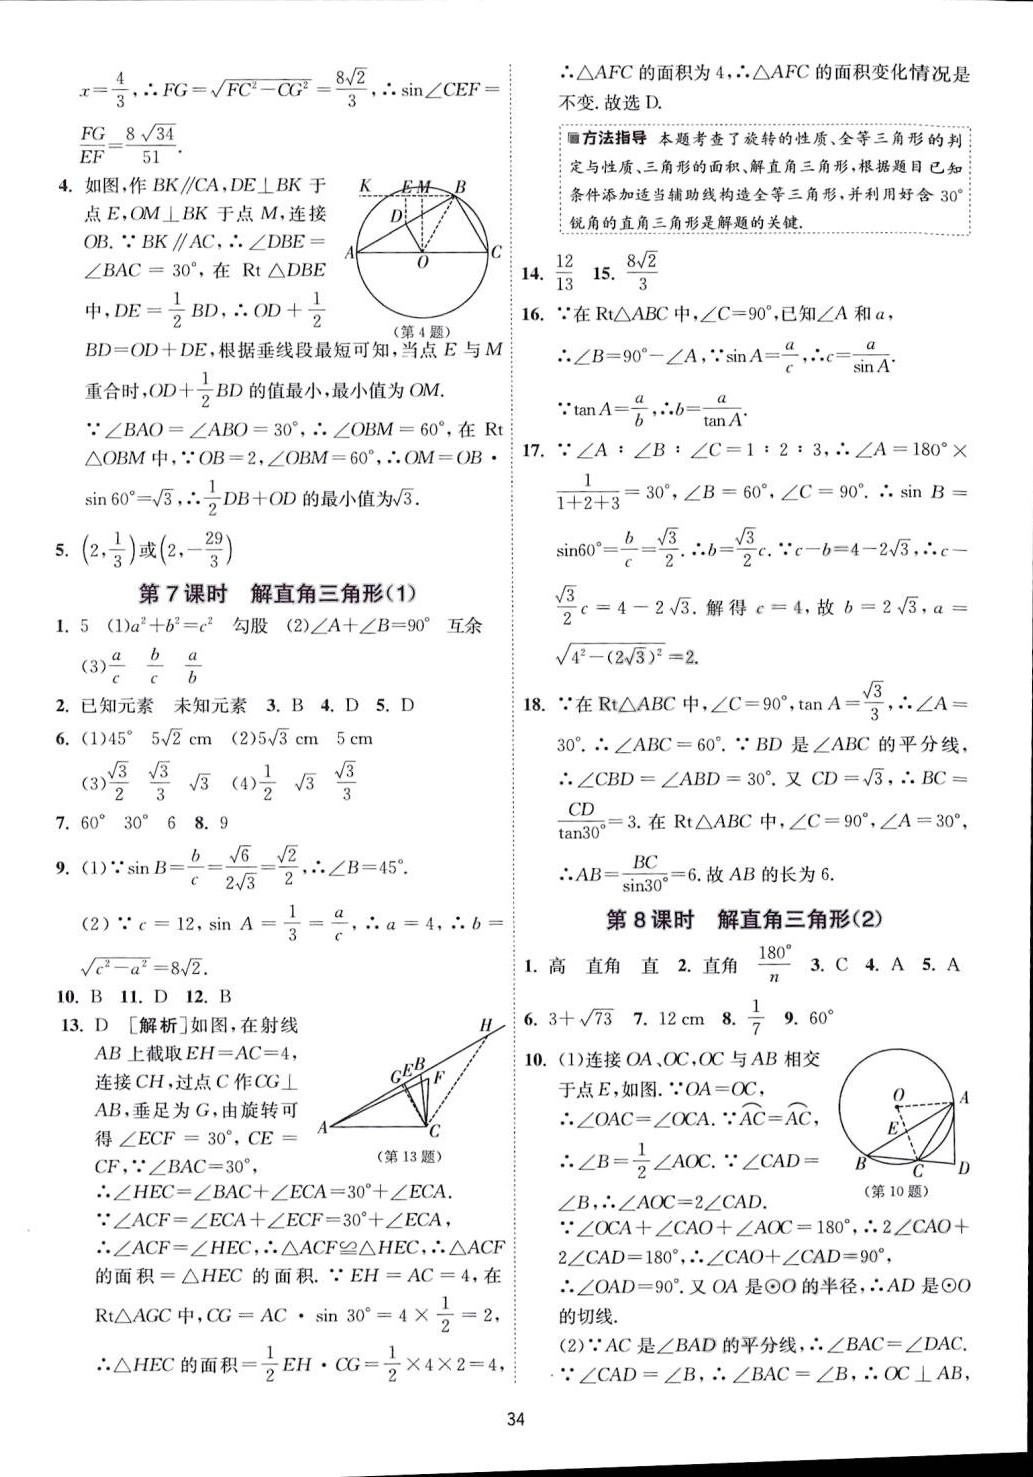 x=4/3,∴FG=√(FC²-CG²)=8√2/3,∴sin∠CEF=
FG/EF=8√34/51.
4. 如图,作 BK∥CA,DE⊥BK 于
点 E,OM⊥BK 于点 M,连接
OB.∵BK∥AC,∴∠DBE=
∠BAC=30°,在 Rt△DBE
中,DE=1/2 BD,∴OD+1/2
K E M B D A O C
(第4题)
BD=OD+DE,根据垂线段最短可知,当点 E 与 M
重合时,OD+1/2BD 的值最小,最小值为 OM.
∵∠BAO=∠ABO=30°,∴∠OBM=60°,在 Rt
△OBM 中,∵OB=2,∠OBM=60°,∴OM=OB·
sin 60°=√3,∴1/2DB+OD 的最小值为√3.
5. (2,1/3)或(2,-29/3)
第7课时 解直角三角形(1)
1. 5 (1)a²+b²=c² 勾股 (2)∠A+∠B=90° 互余
(3)a/c b/c a/b
2. 已知元素 未知元素 3. B 4. D 5. D
6. (1)45° 5√2 cm (2)5√3 cm 5 cm
(3)√3/2 √3/3 √3 (4)1/2 √3 √3/3
7. 60° 30° 6 8. 9
9. (1)∵sin B=b/c=√6/2√3=√2/2,∴∠B=45°.
(2)∵c=12,sin A=1/3=a/c,∴a=4,∴b=
√(c²-a²)=8√2.
10. B 11. D 12. B
13. D [解析]如图,在射线
AB 上截取EH=AC=4,
连接 CH,过点 C 作CG⊥
AB,垂足为 G,由旋转可
得∠ECF=30°,CE=
CF,∵∠BAC=30°,
H G E B F A C
(第13题)
∴∠HEC=∠BAC+∠ECA=30°+∠ECA.
∵∠ACF=∠ECA+∠ECF=30°+∠ECA,
∴∠ACF=∠HEC,∴△ACF≌△HEC,∴△ACF
的面积=△HEC 的面积.∵EH=AC=4,在
Rt△AGC 中,CG=AC·sin 30°=4×1/2=2,
∴△HEC 的面积=1/2EH·CG=1/2×4×2=4,
∴△AFC 的面积为 4,∴△AFC 的面积变化情况是
不变.故选 D.
方法指导 本题考查了旋转的性质、全等三角形的判
定与性质、三角形的面积、解直角三角形,根据题目已知
条件添加适当辅助线构造全等三角形,并利用好含30°
锐角的直角三角形是解题的关键.
14. 12/13 15. 8√2/3
16. ∵在 Rt△ABC 中,∠C=90°,已知∠A 和 a,
∴∠B=90°-∠A,∵sin A=a/c,∴c=a/sin A.
∵tan A=a/b,∴b=a/tan A.
17. ∵∠A:∠B:∠C=1:2:3,∴∠A=180°×
1/(1+2+3)=30°,∠B=60°,∠C=90°.∴sin B=
sin60°=b/c=√3/2.∴b=√3/2c.∵c-b=4-2√3,∴c-
√3/2c=4-2√3.解得 c=4,故 b=2√3,a=
√(4²-(2√3)²)=2.
18. ∵在 Rt△ABC 中,∠C=90°,tan A=√3/3,∴∠A=
30°.∴∠ABC=60°.∵BD 是∠ABC 的平分线,
∴∠CBD=∠ABD=30°.又 CD=√3,∴BC=
CD/tan30°=3.在 Rt△ABC 中,∠C=90°,∠A=30°,
∴AB=BC/sin30°=6.故 AB 的长为 6.
第8课时 解直角三角形(2)
1. 高 直角 直 2. 直角 180°/n 3. C 4. A 5. A
6. 3+√73 7. 12 cm 8. 1/7 9. 60°
10. (1)连接 OA、OC,OC 与 AB 相交
于点 E,如图.∵OA=OC,
∴∠OAC=∠OCA.∵A͡C=A͡C,
∴∠B=1/2∠AOC.∵∠CAD=
∠B,∴∠AOC=2∠CAD.
O A E B C D
(第10题)
∵∠OCA+∠CAO+∠AOC=180°,∴2∠CAO+
2∠CAD=180°,∴∠CAO+∠CAD=90°,
∴∠OAD=90°.又 OA 是⊙O 的半径,∴AD 是⊙O
的切线.
(2)∵AC 是∠BAD 的平分线,∴∠BAC=∠DAC.
∵∠CAD=∠B,∴∠BAC=∠B,∴OC⊥AB,
34